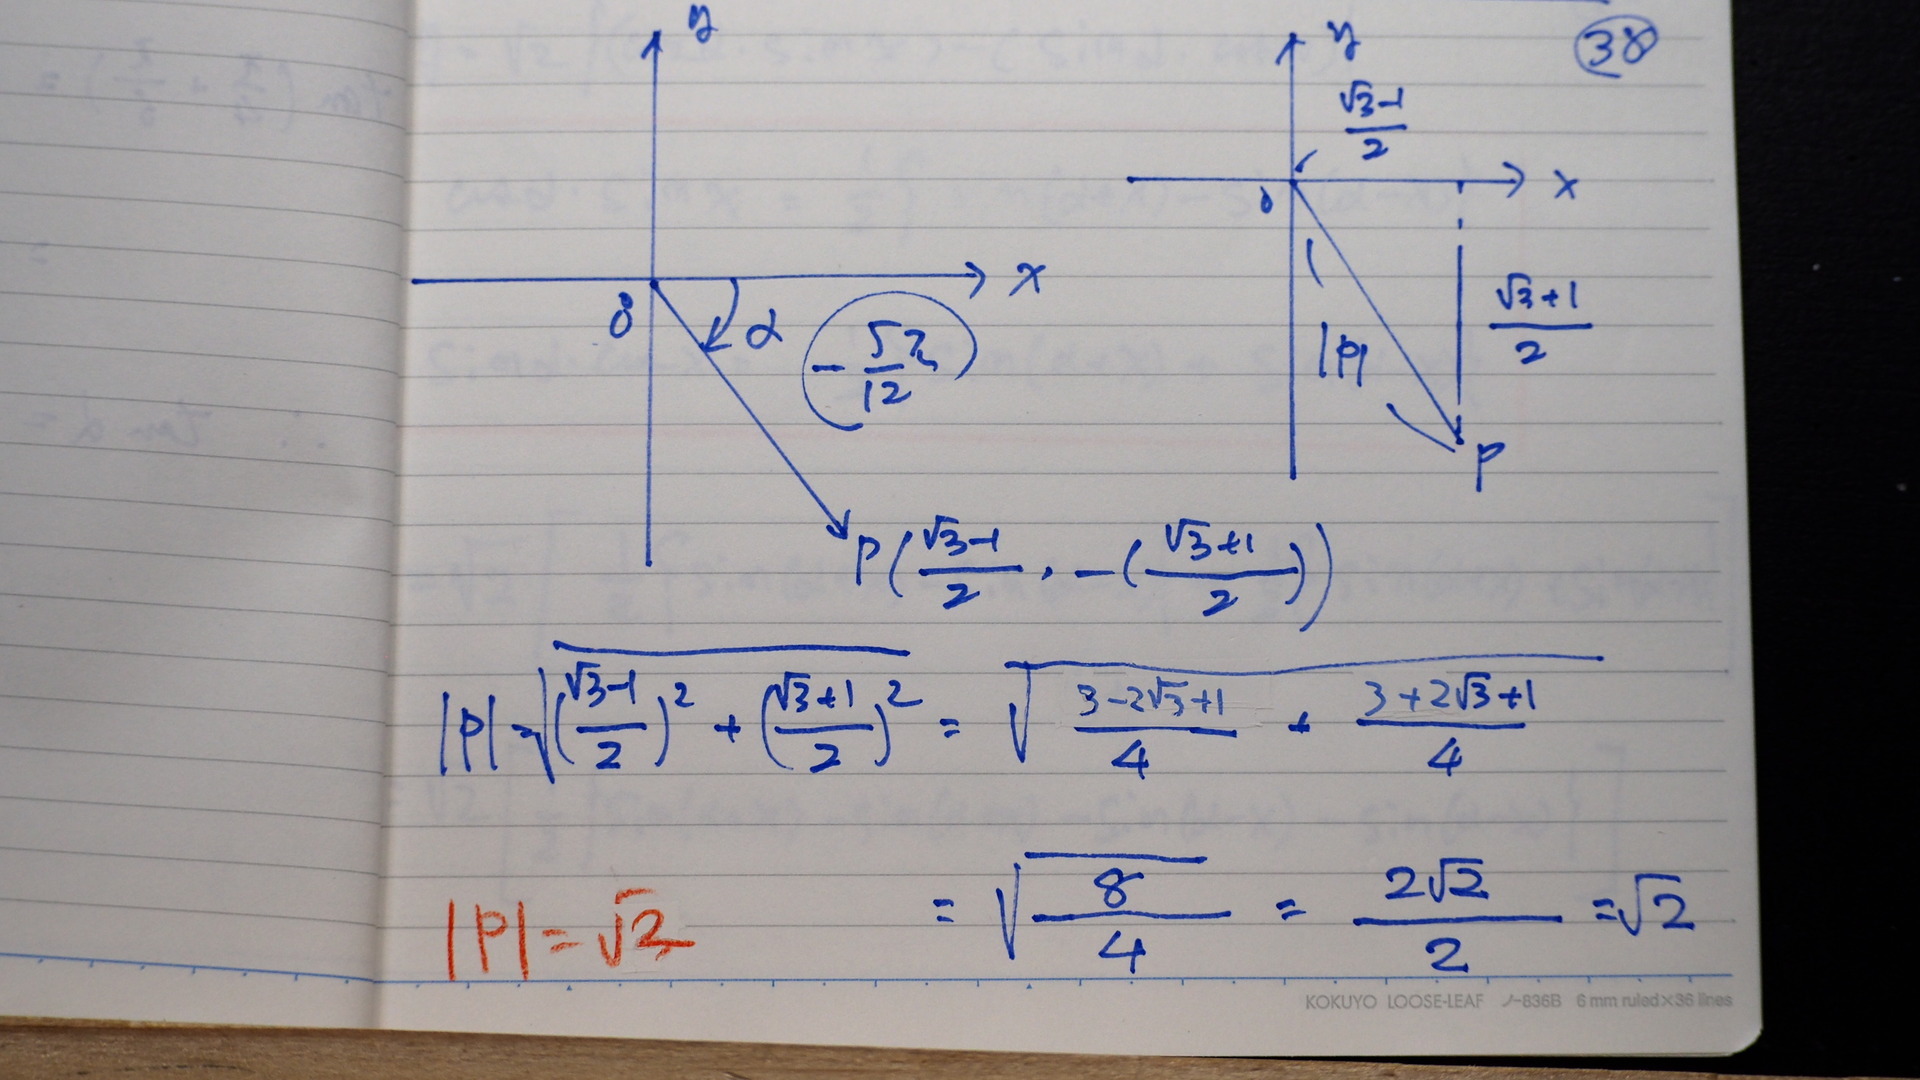 38
y
x
0
α
(-5π/12)
P((√3-1)/2, -((√3+1)/2))
y
(√3-1)/2
x
0
|P|
(√3+1)/2
P
|P| = √(((√3-1)/2)² + ((√3+1)/2)²) = √((3-2√3+1)/4 + (3+2√3+1)/4)
= √(8/4) = 2√2/2 = √2
|P| = √2
KOKUYO LOOSE-LEAF ノ-836B 6 mm ruled×36 lines